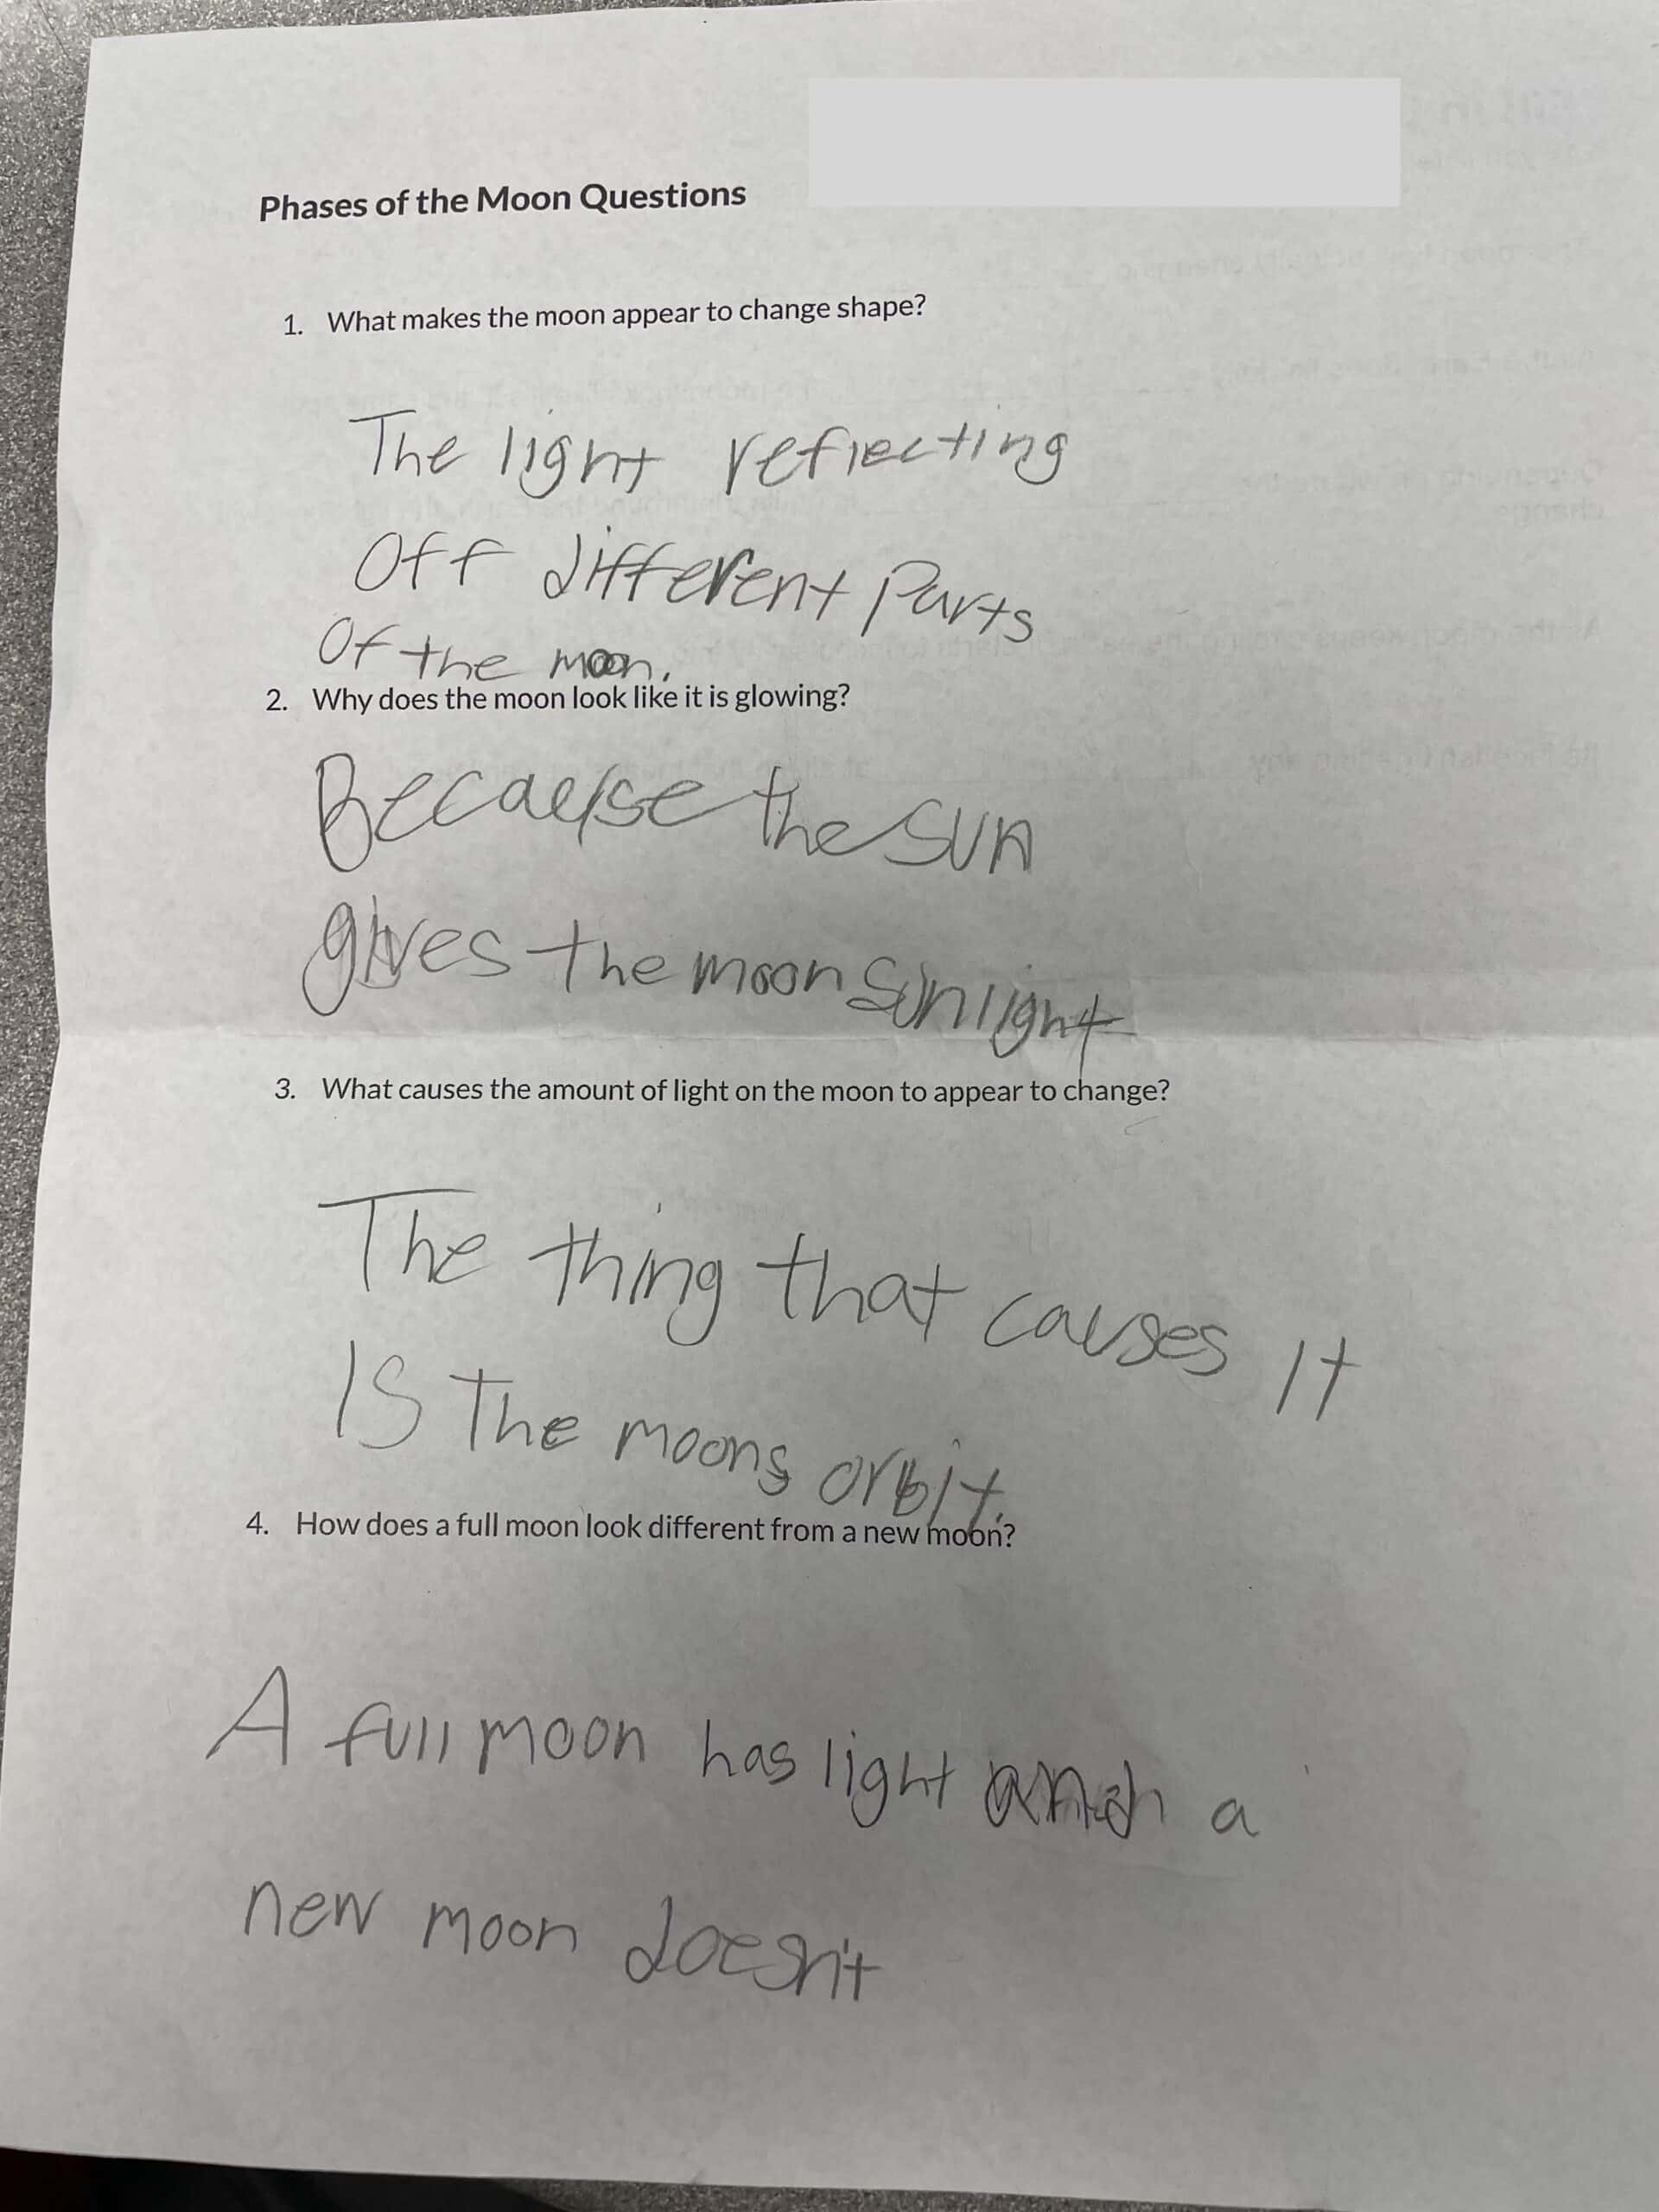 Phases of the Moon Questions
1. What makes the moon appear to change shape?
The light reflecting
off different parts
of the moon.
2. Why does the moon look like it is glowing?
Because the sun
gives the moon sunlight
3. What causes the amount of light on the moon to appear to change?
The thing that causes it
is the moons orbit.
4. How does a full moon look different from a new moon?
A full moon has light and a
new moon doesn't